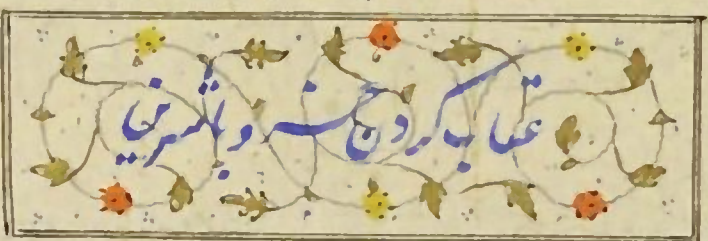 عتاب کردن خسرو با شیرین